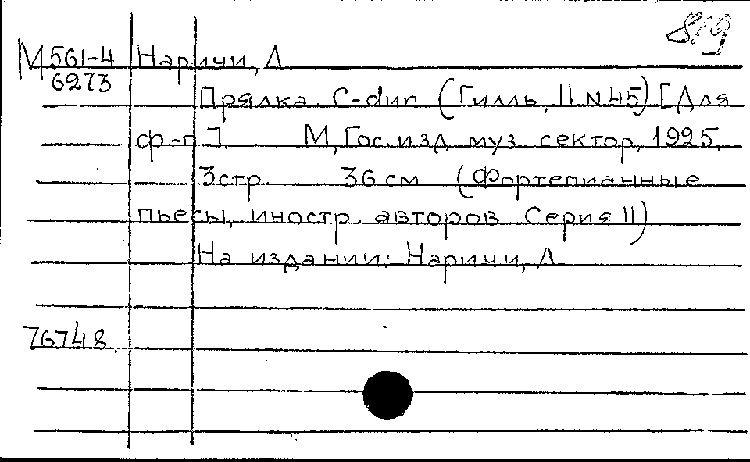 819
М 561-4 Наричи, А
6273
Прялка C-dur (Гилль, II N 45) [Для
ф-п]. М, Гос. изд. муз. сектор, 1925.
3 стр. 36 см (Фортепианные
пьесы иностр. авторов Серия II)
На издании: Наричи, А
76748